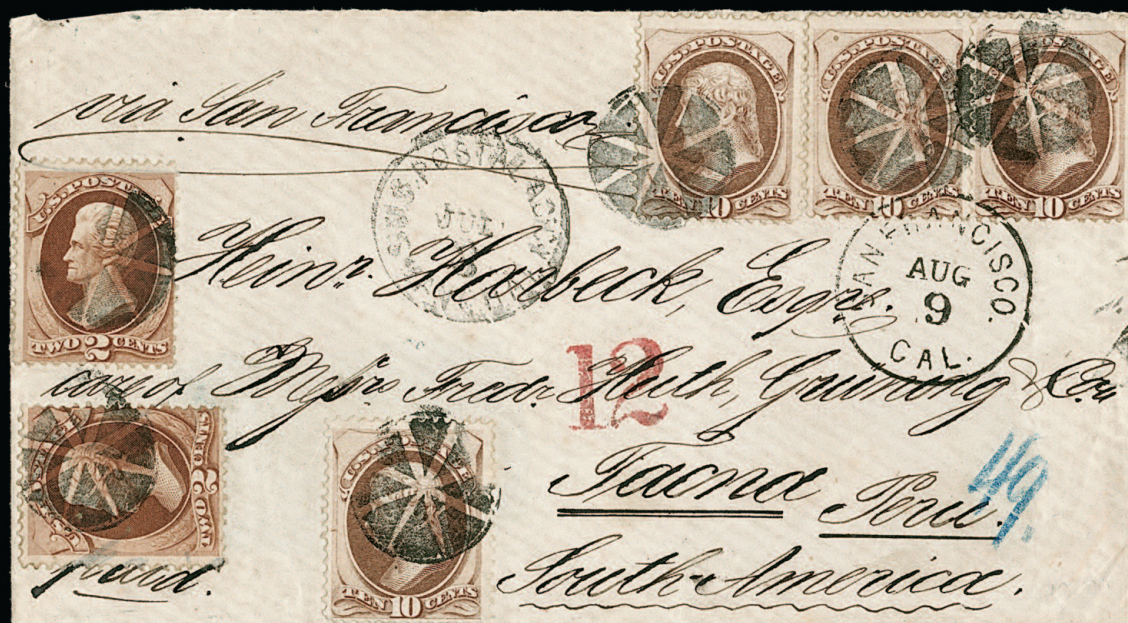 via San Francisco
U.S. POSTAGE
TEN 10 CENTS
U.S. POSTAGE
TEN 10 CENTS
U.S. POSTAGE
TEN 10 CENTS
U.S. POSTAGE
TWO 2 CENTS
U.S. POSTAL AGCY
JUL
SAN FRANCISCO.
AUG
9
CAL.
Heinr. Harbeck, Esqre.
care of Messrs Fredr. Huth, Gruning & Co
12
Tacna
Peru.
49.
South America.
U.S. POSTAGE
TWO 2 CENTS
U.S. POSTAGE
TEN 10 CENTS
paid.